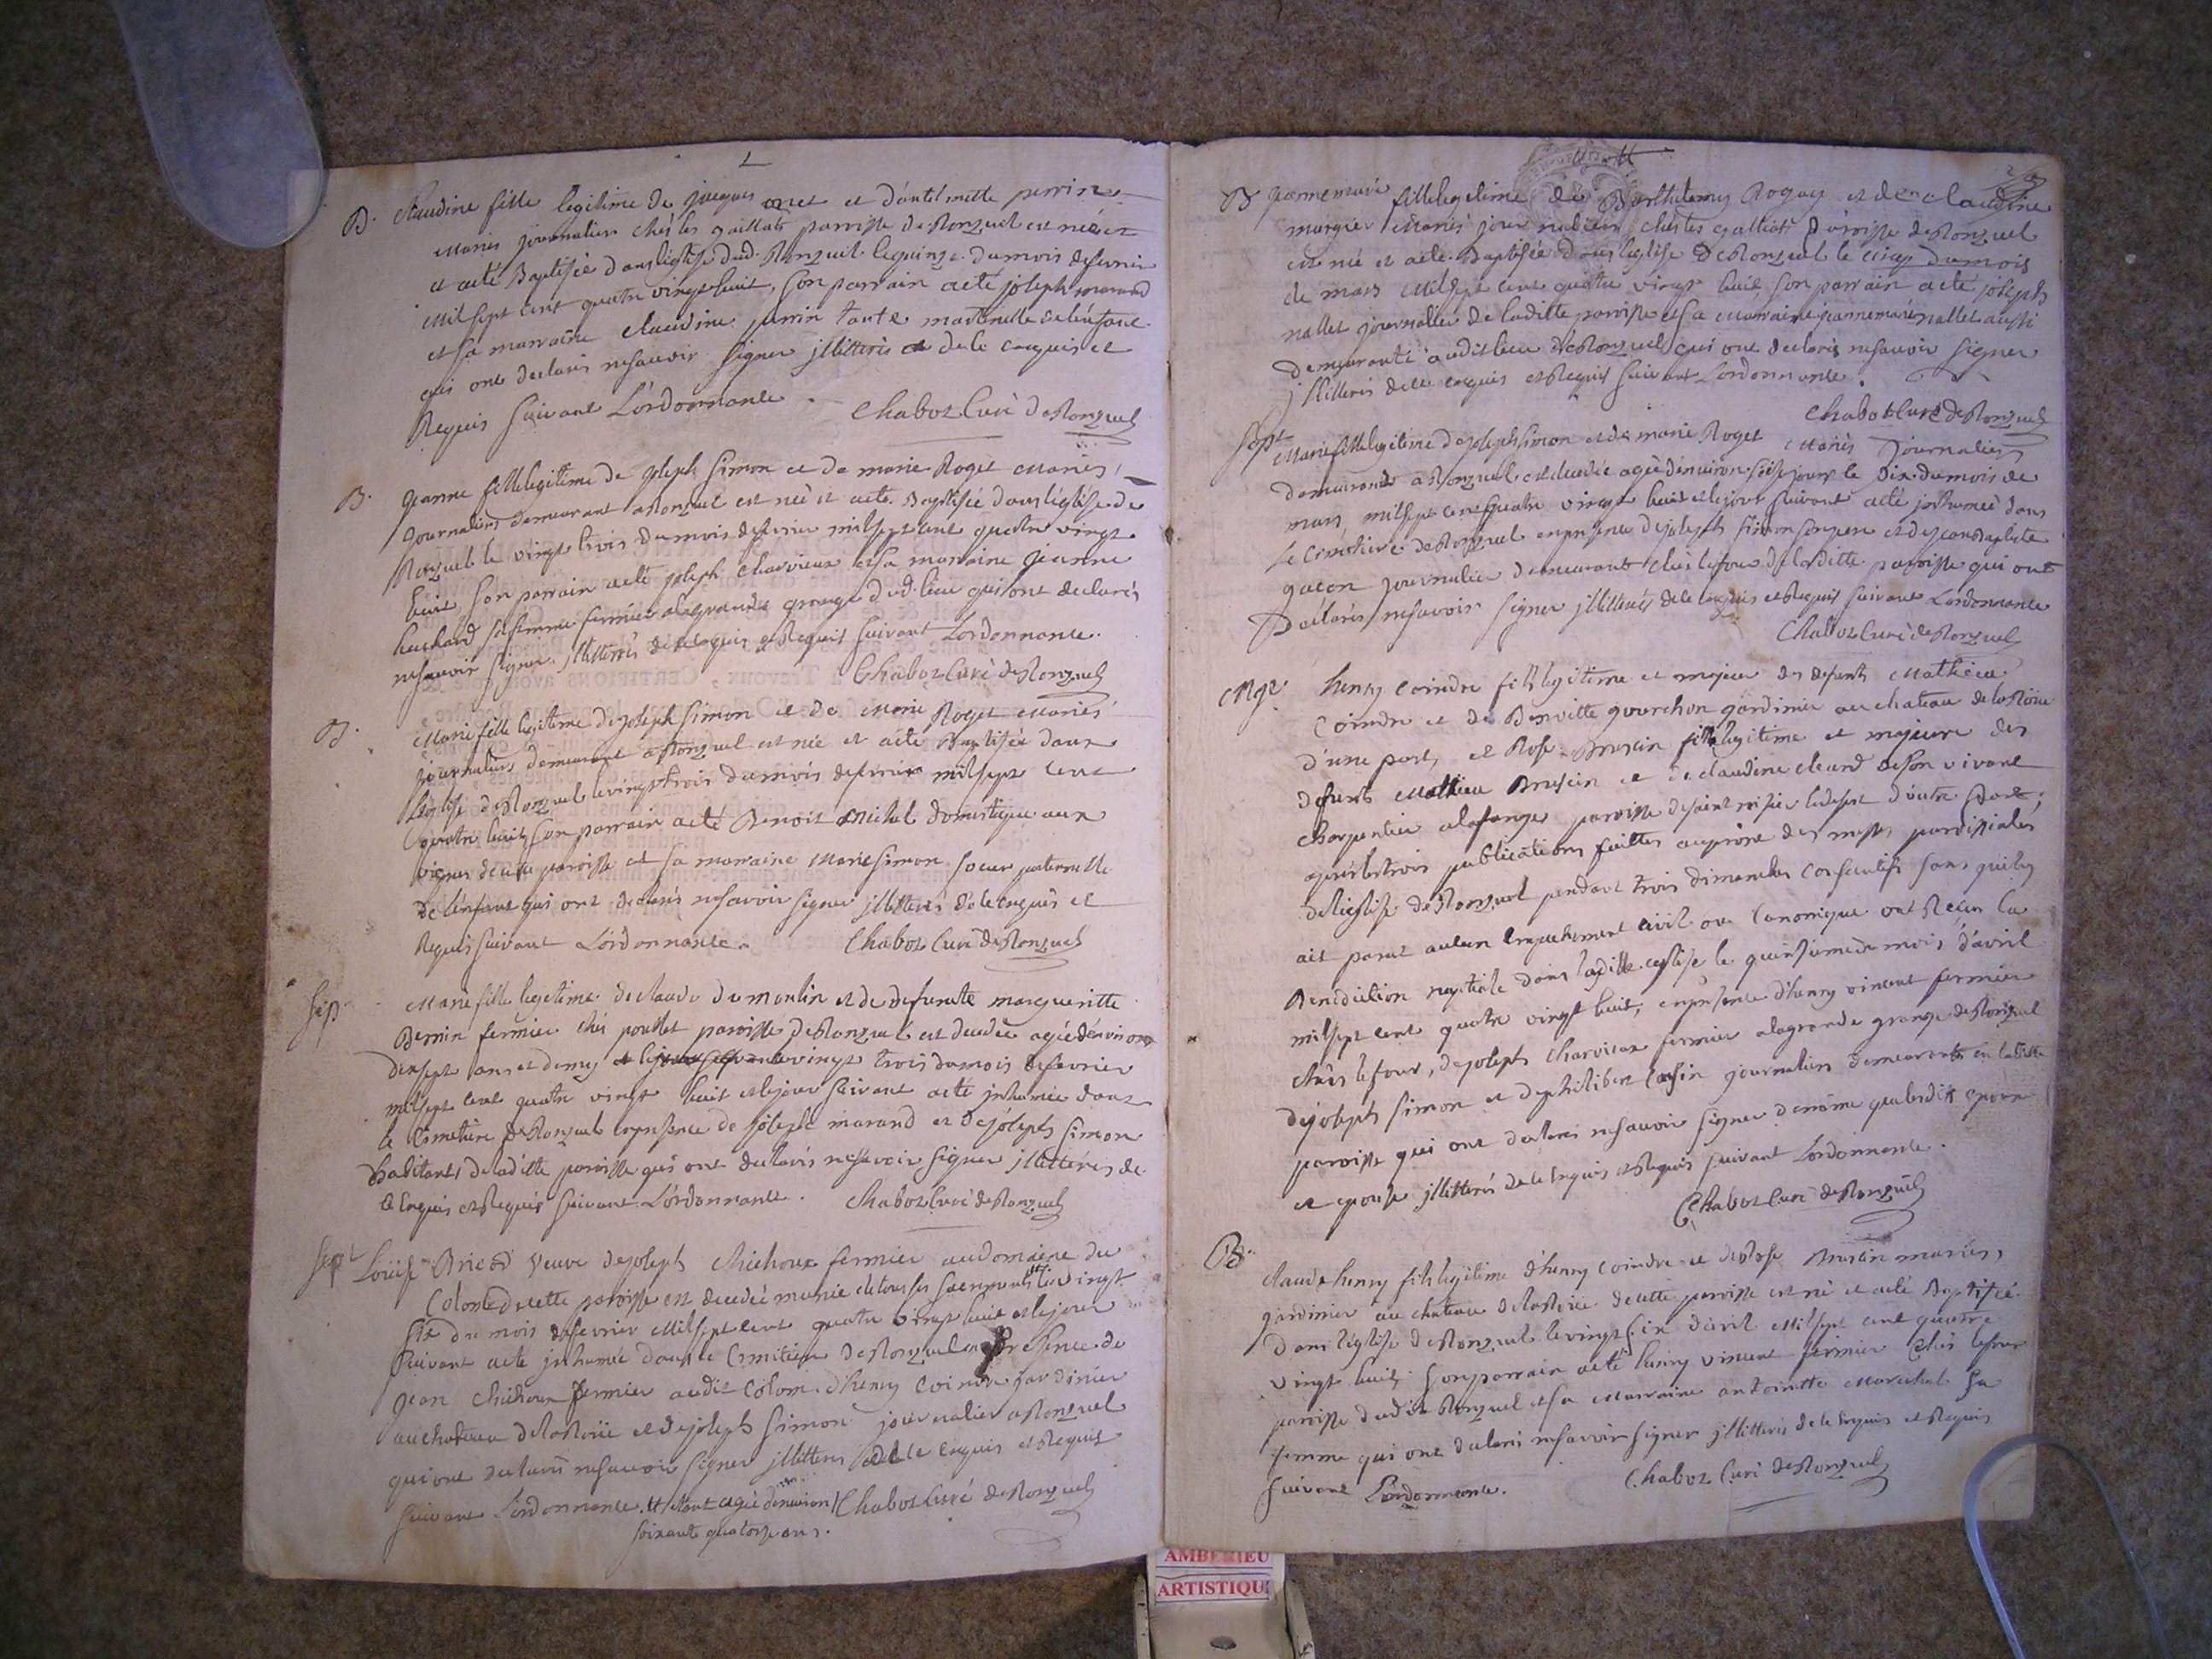 B. Claudine fille legitime de jacques et d'antelmette perrin
mariés journalier chés les gaillats parroisse de Ronzuel est née et
a eté Baptisée dans l'eglise dud. Ronzuel le quinze du mois de fevrier
mil sept cent quatre vingt huit, son parrain a eté joseph marand
et sa marraine claudine perrin tante maternelle de l'enfant
qui ont declarés ne savoir signer illitterés de ce enquis et
Requis suivant L'ordonnance. Chaboz Curé de Ronzuel
B. jeanne fille legitime de joseph simon et de marie Roget mariés,
journaliers demeurant a Ronzuel est née et a eté Baptisée dans l'eglise de
Ronzuel le vingt trois du mois de fevrier mil sept cent quatre vingt
huit son parrain a eté joseph Charvieux et sa marraine jeanne
sa femme fermier a la grande grange dud. lieu qui ont declarés
ne savoir signer illitterés de ce enquis et Requis suivant L'ordonnance.
Chaboz Curé de Ronzuel
B. Marie fille legitime de joseph simon et de Marie Roget mariés
journaliers demeurant a Ronzuel est née et a eté Baptisée dans
l'eglise de Ronzuel le vingt trois du mois de fevrier mil sept cent
quatre huit son parrain a eté Benoit Michel domestique aux
vignes de cette paroisse et sa marraine Marie simon soeur paternelle
de l'enfant qui ont declarés ne savoir signer illitterés de ce enquis et
Requis suivant L'ordonnance. Chaboz Curé de Ronzuel
Sep. Marie fille legitime de claude dumoulin et de defunte margueritte
Perrin fermier chés poullet paroisse de Ronzuel est decedée agée d'environ
dix sept ans et demy et le jour suivant vingt trois du mois de fevrier
mil sept cent quatre vingt huit et le jour suivant a eté inhumée dans
le Cimetière de Ronzuel en presence de joseph marand et de joseph simon
habitants de la ditte paroisse qui ont declarés ne savoir signer illitterés de
ce Enquis et Requis suivant L'ordonnance. Chaboz Curé de Ronzuel
Sept Louise veuve de joseph Chichoux fermier au domaine du
Colombe de cette paroisse est decedée munie de tous les sacrements le vingt
six du mois de fevrier Mil sept cent quatre vingt huit et le jour
suivant a eté inhumée dans le Cimetière de Ronzuel en presence de
jean Chichoux fermier audit Colom. d'henry Coindre jardinier
au chateau de la Roüe et de joseph simon journalier a Ronzuel
qui ont declaré ne savoir signer illitterés de ce enquis et Requis
suivant L'ordonnance. ++ etant agée d'environ Chaboz Curé de Ronzuel
soixante quatorze ans.
B jeanne marie fille legitime de Barthelemy Rogay et de claudine
margier mariés journaliers chés les galliat Paroisse de Ronzuel
est née et a eté Baptisée dans l'eglise de Ronzuel le cinq du mois
de mars Mil sept cent quatre vingt huit, son parrain a eté joseph
nallet journalier de la ditte paroisse et sa marraine jeanne marie nallet aussi
demeurante audit lieu de Ronzuel qui ont declarés ne savoir signer
illitterés de ce enquis et Requis suivant L'ordonnance.
Chaboz Curé de Ronzuel
Sept Marie fille legitime de joseph simon et de marie Roget Mariés Journaliers
demeurant a Ronzuel est decedée agée d'environ seise jours le Dix du mois de
mars, mil sept cent quatre vingt huit et le jour suivant a eté inhumée dans
le Cimetière de Ronzuel en presence de joseph simon son pere et de jean Baptiste
gacon journalier demeurant chés le four de la ditte paroisse qui ont
Declarés ne savoir signer illitterés de ce enquis et Requis suivant L'ordonnance
Chaboz Curé de Ronzuel
Mge. henry Coindre fils legitime et majeur des defunts Mathieu
Coindre et de gourchon jardinier au chateau de la Roüe
d'une part, et Rose Bruscin fille legitime et majeure des
defunts Mathieu Bruscin et de claudine cleard de son vivant
charpentier a la paroisse de saint d'autre part;
après les trois publications faittes au prône des messes paroissiales
de l'eglise de Ronzuel pendant trois dimanches consecutifs sans qu'il y
ait parut aucun empechement civil ou Canonique ont Reçus la
Benediction nuptiale dans la ditte eglise le quinsieme de mois d'avril
mil sept cent quatre vingt huit, en presence d'henry vincent fermier
chés le four, de joseph Charvieux fermier a la grande grange de Ronzuel
de joseph simon et de philibert journaliers demeurants en la ditte
paroisse qui ont declarés ne savoir signer de même que lesdits epoux
et epouse illitterés de ce enquis et Requis suivant L'ordonnance.
Chaboz Curé de Ronzuel
B. claude henry fils legitime d'henry Coindre et de Rose Bruscin mariés,
jardinier au chateau de la Roüe de cette paroisse est né et a eté Baptisé
dans l'eglise de Ronzuel le vingt six d'avril Mil sept cent quatre
vingt huit, son parrain a eté henry vincent fermier chés le four
paroisse dudit Ronzuel et sa Marraine antoinette Marechal sa
femme qui ont declarés ne savoir signer illitterés de ce enquis et Requis
suivant L'ordonnance. Chaboz Curé de Ronzuel
AMBERIEU
ARTISTIQU